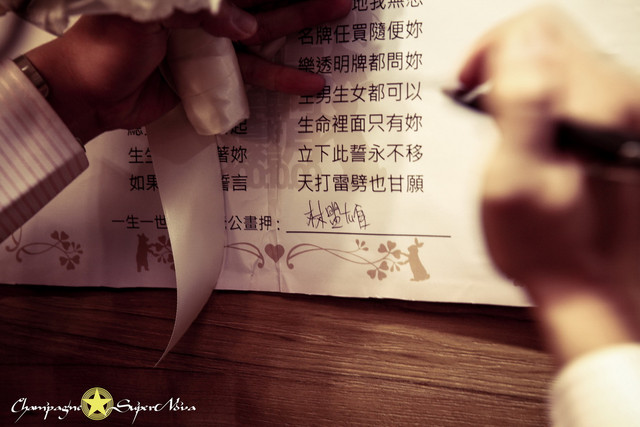 地我無怨
名牌任買隨便妳
樂透明牌都問妳
生男生女都可以
生命裡面只有妳
立下此誓永不移
天打雷劈也甘願
起
生生 著妳
如果 誓言
一生一世 公畫押：
Champagne SuperNova